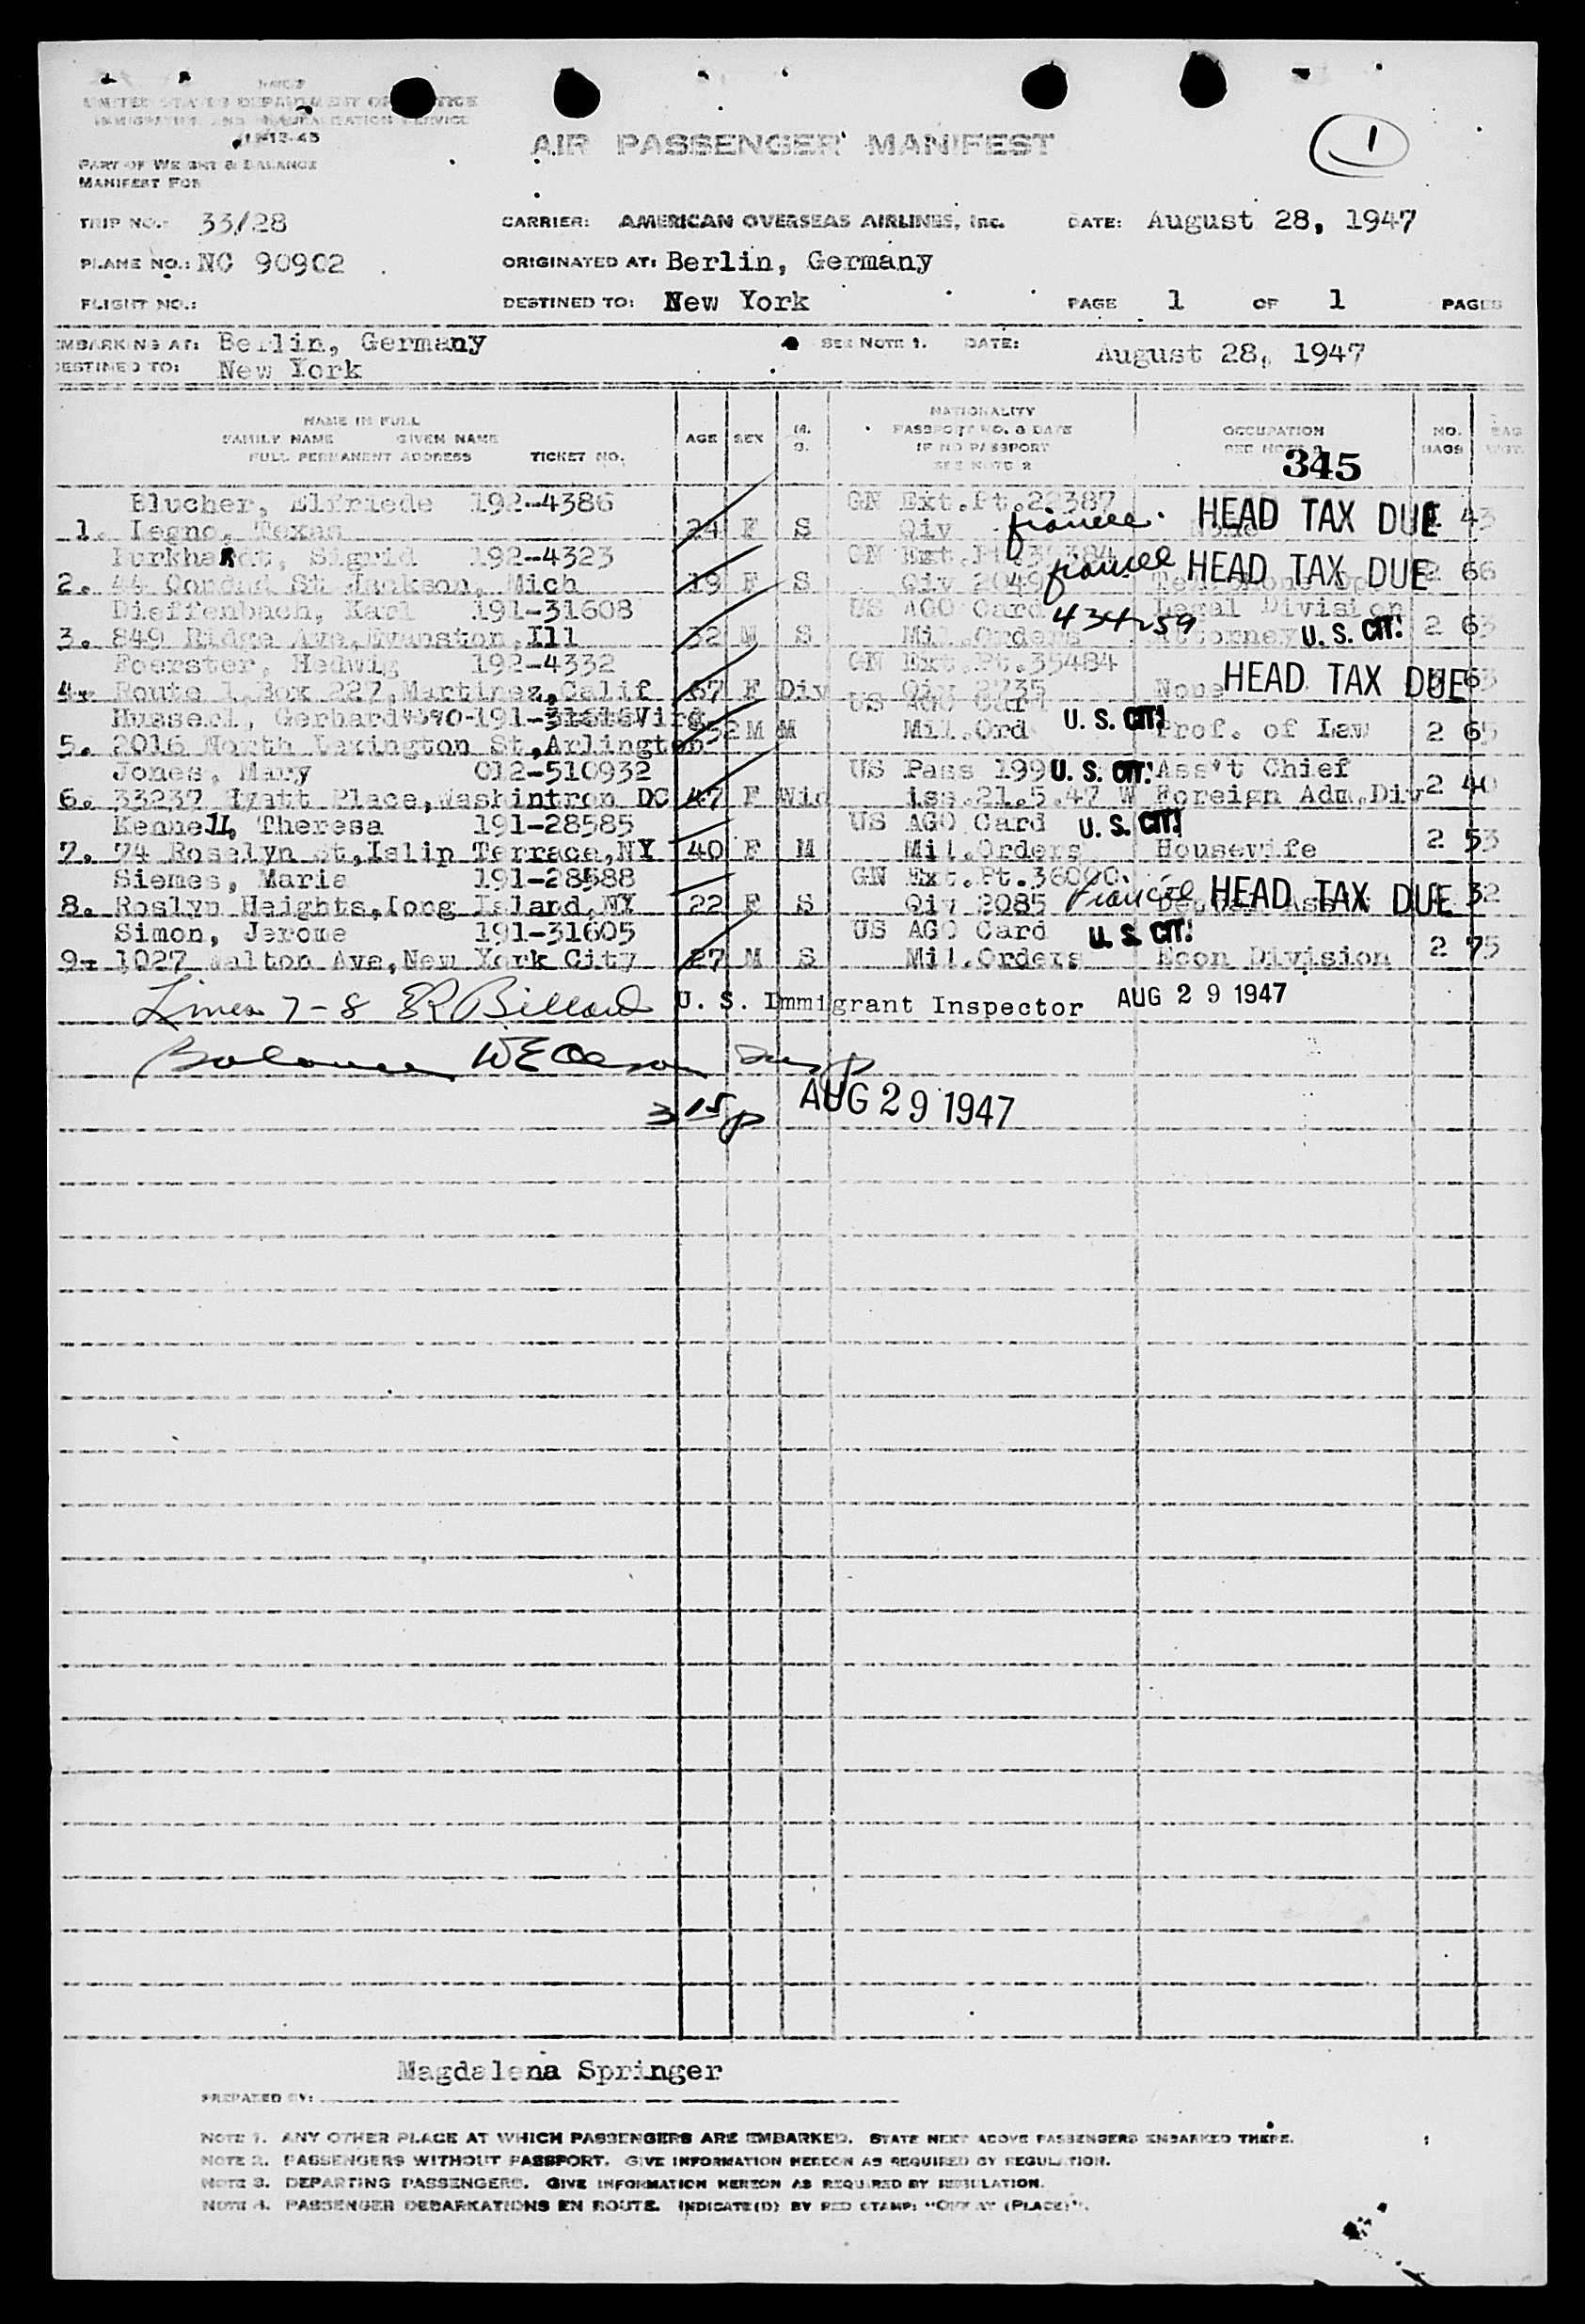 UNITED STATES DEPARTMENT OF JUSTICE
IMMIGRATION AND NATURALIZATION SERVICE
AIR PASSENGER MANIFEST
1
PART OF WEIGHT & BALANCE
MANIFEST FOR
TRIP NO.: 33/28 CARRIER: AMERICAN OVERSEAS AIRLINES, Inc. DATE: August 28, 1947
PLANE NO.: NC 90902 ORIGINATED AT: Berlin, Germany
FLIGHT NO.: DESTINED TO: New York PAGE 1 OF 1 PAGES
EMBARKING AT: Berlin, Germany SEE NOTE 1. DATE: August 28, 1947
DESTINED TO: New York
NAME IN FULL
FAMILY NAME GIVEN NAME
FULL PERMANENT ADDRESS TICKET NO. AGE SEX M. S. NATIONALITY PASSPORT NO. & DATE IF NO PASSPORT SEE NOTE 2 OCCUPATION NO. BAGS BAG WGT.
345
Blucher, Elfriede 192-4386 GN Ext.Pt.22387
1. Legno, Texas 24 F S Qiv fiancee. HEAD TAX DUE 43
Burkhardt, Sigrid 192-4323 GN Ext.Pt.
2. 44 St Jackson, Mich 19 F S Qiv 2049 fiancee HEAD TAX DUE 2 66
Dieffenbach, Karl 191-31608 US AGO Card Legal Division
3. 849 Ridge Ave,Evanston,Ill 32 M S Mil.Orders Attorney U. S. CIT! 2 63
Foerster, Hedwig 192-4332 GN Ext.Pt.35484
4. Route 1,Box 227,Martinez,Calif 67 F Div Qiv 2735 None HEAD TAX DUE 63
Husserl, Gerhard 191-31616 Virg US AGO Card
5. 2016 North Lexington St,Arlington 52 M M Mil.Ord U. S. CIT! Prof. of Law 2 65
Jones, Mary 012-510932 US Pass 199 U. S. CIT! Ass't Chief
6. 33237 Hyatt Place,Washintron DC 47 F Wid iss.21.5.47 W Foreign Adm.Div 2 40
Kennell, Theresa 191-28585 US AGO Card U. S. CIT!
7. 74 Roselyn St,Islip Terrace,NY 40 F M Mil.Orders Housewife 2 53
Siemes, Maria 191-28588 GN Ext.Pt.36000
8. Roslyn Heights,Long Island,NY 22 F S Qiv 2085 fiancee HEAD TAX DUE 32
Simon, Jerome 191-31605 US AGO Card U. S. CIT!
9. 1027 Walton Ave,New York City 27 M S Mil.Orders Econ Division 2 75
Lines 7-8 ER Billard U. S. Immigrant Inspector AUG 29 1947
Balance W E Olsen Insp
3 15 p AUG 29 1947
Magdalena Springer
PREPARED BY:
NOTE 1. ANY OTHER PLACE AT WHICH PASSENGERS ARE EMBARKED. STATE NEXT ABOVE PASSENGERS EMBARKED THERE.
NOTE 2. PASSENGERS WITHOUT PASSPORT. GIVE INFORMATION HEREON AS REQUIRED BY REGULATION.
NOTE 3. DEPARTING PASSENGERS. GIVE INFORMATION HEREON AS REQUIRED BY REGULATION.
NOTE 4. PASSENGER DEBARKATIONS EN ROUTE. INDICATE(D) BY RED STAMP: "OFF AT (PLACE)".